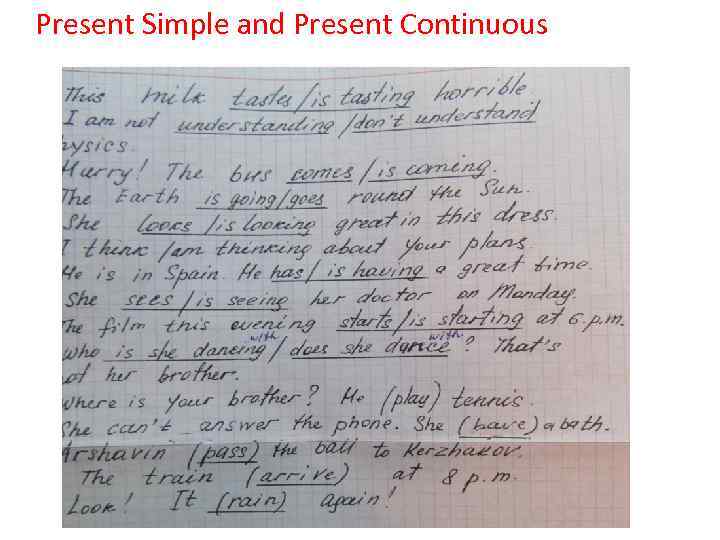 Present Simple and Present Continuous
This milk tastes/is tasting horrible.
I am not understanding/don't understand
hysics.
Hurry! The bus comes/is coming.
The Earth is going/goes round the Sun.
She looks/is looking great in this dress.
I think/am thinking about your plans.
He is in Spain. He has/is having a great time.
She sees/is seeing her doctor on Monday.
The film this evening starts/is starting at 6 p.m.
Who is she dancing with/does she dance with? That's
ot her brother.
Where is your brother? He (play) tennis.
She can't answer the phone. She (have) a bath.
Arshavin (pass) the ball to Kerzhakov.
The train (arrive) at 8 p.m.
Look! It (rain) again!